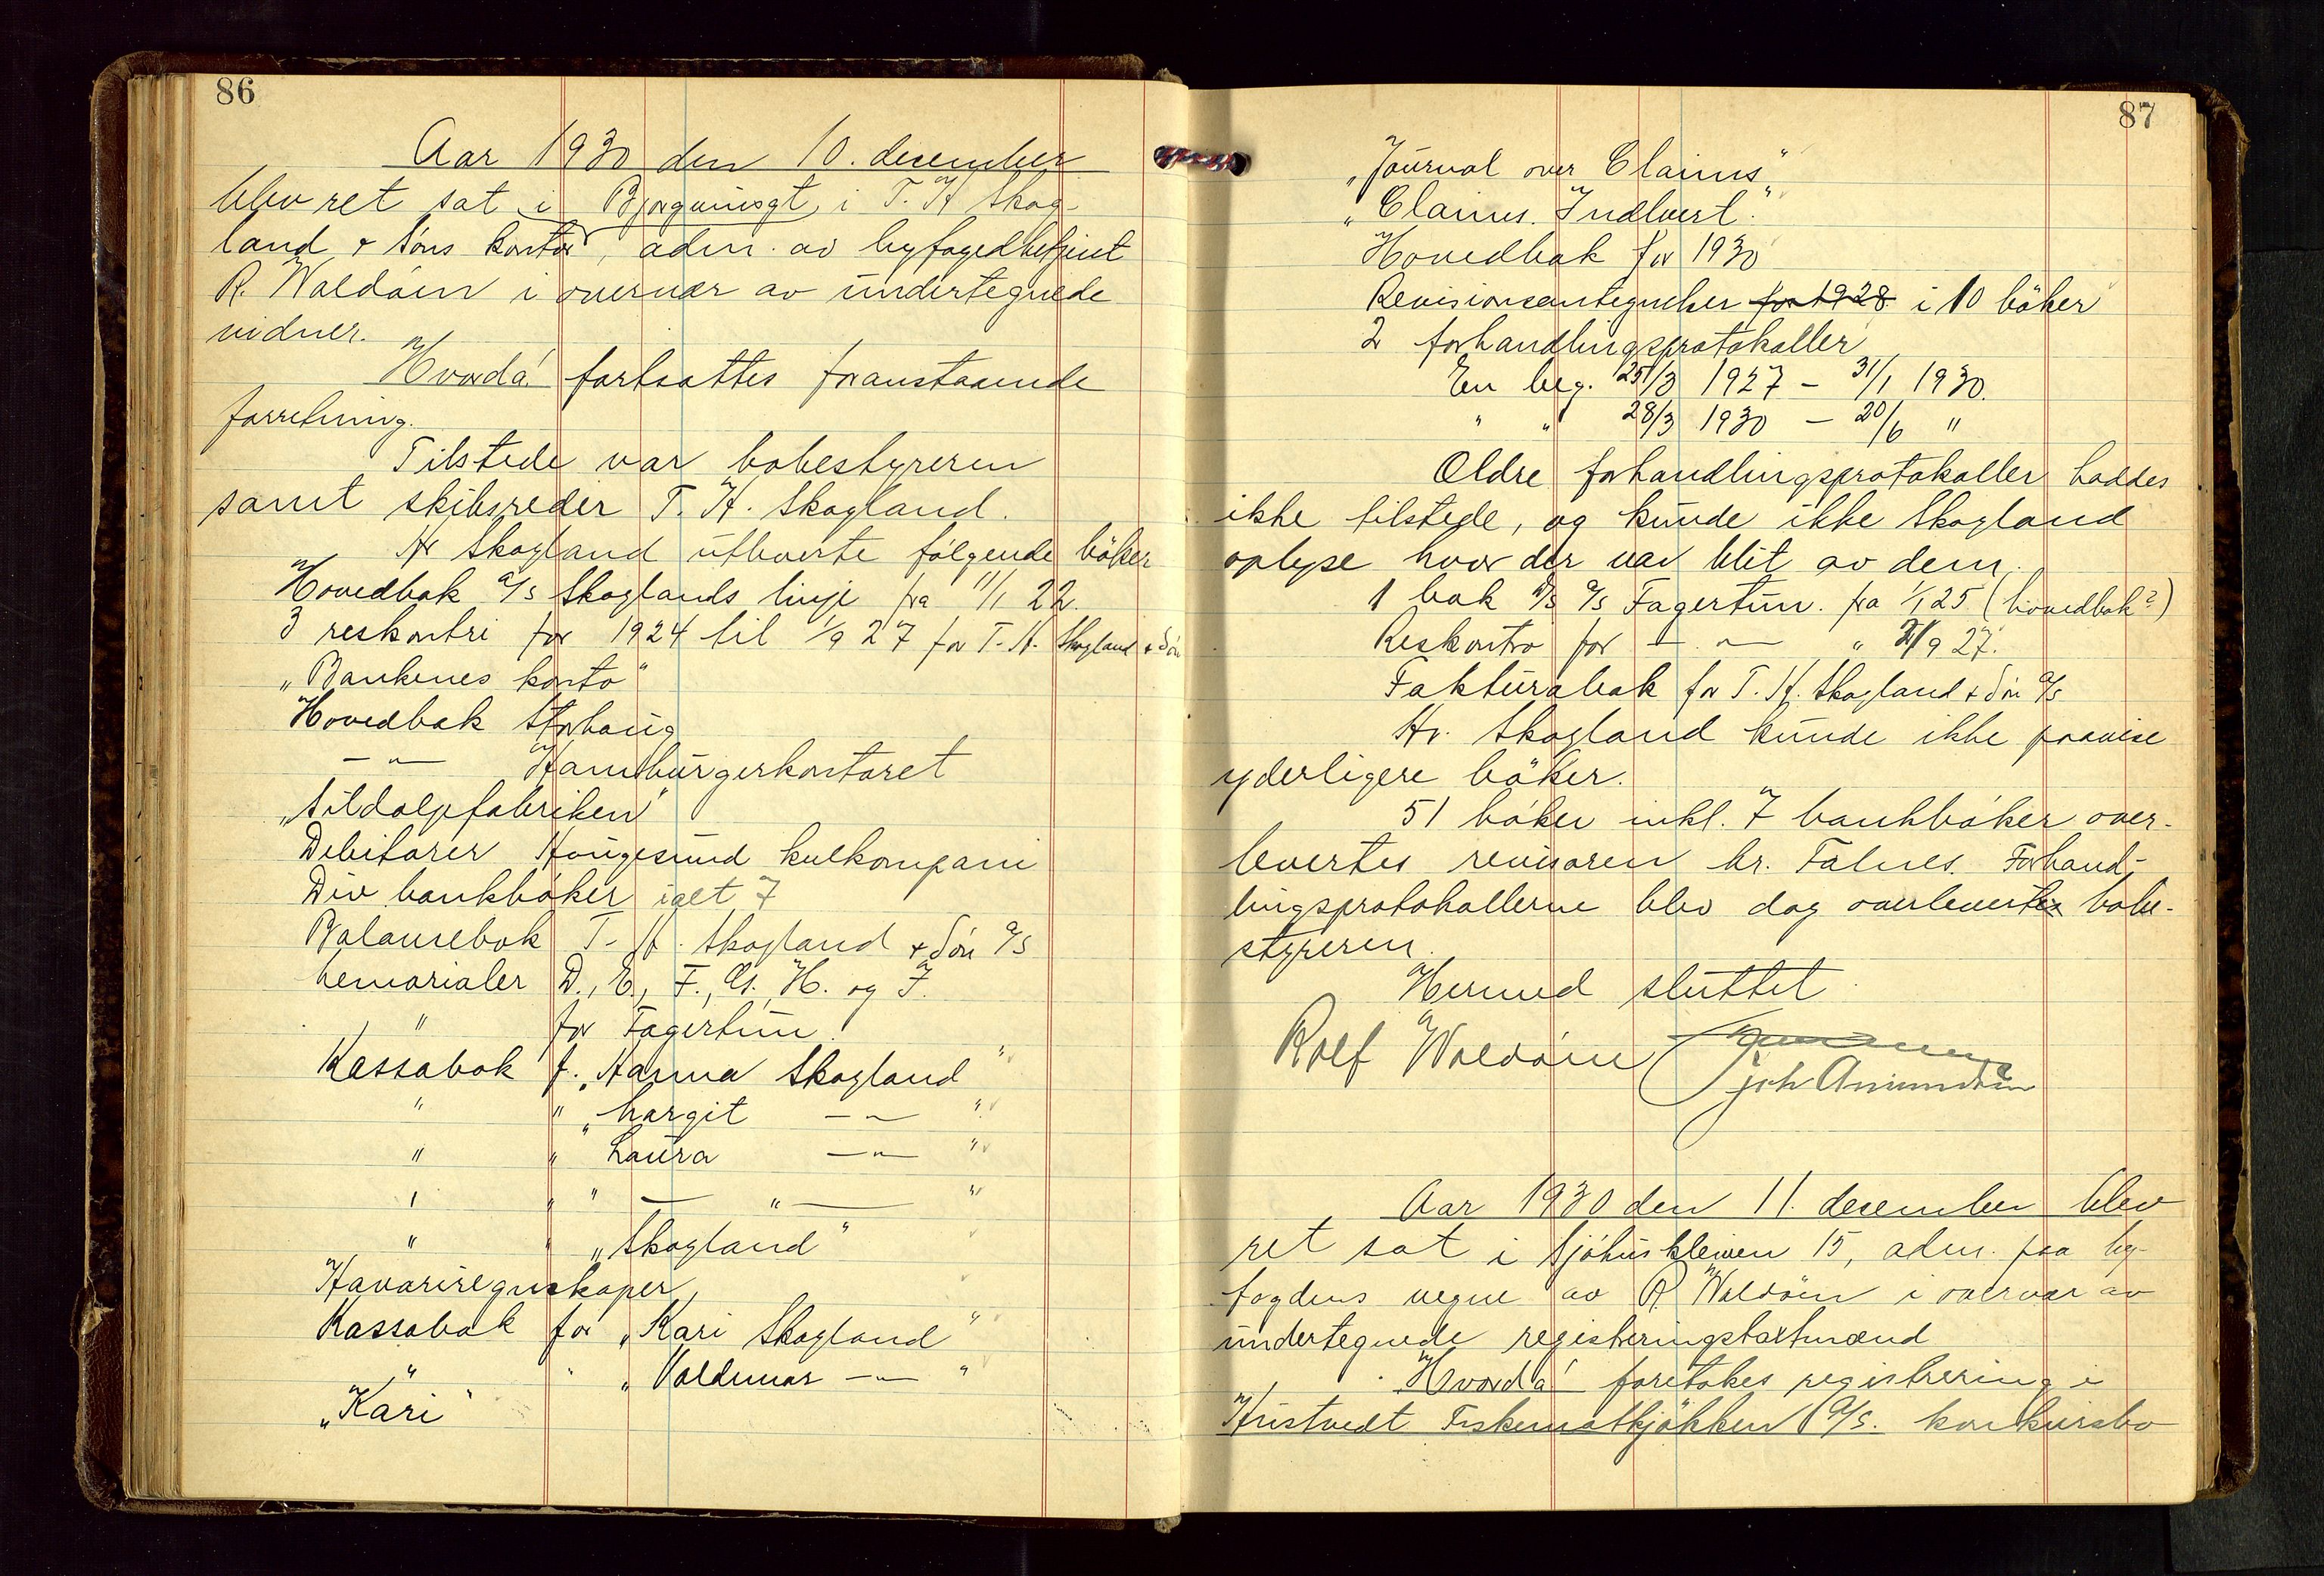 86
Aar 1930 den 10. desember
blev ret sat i Bjergvinsgt, i T. H. Skog-
land & Söns kontor, adm. av byfogedbetjent
R. Waldöen i overvær av undertegnede
vidner.
Hvorda! fortsattes foranstaaende
forretning.
Tilstede var bobestyreren
samt skibsreder T. H. Skogland.
Hr Skogland utleverte følgende böker
Hovedbok A/S Skoglands linje fra 1/1 22.
3 reskontri for 1924 til 1/9 27 for T. H. Skogland & Sön
„Bankenes konto"
Hovedbok Storhaug
— " — Hamburgerkontoret
„Sildoljefabriken"
Debitorer Haugesund kulkompani
Div bankböker ialt 7
Balansebok T. H. Skogland & Sön A/S
Memorialer D., E., F., G., H. og J.
" for Fagertun
Kassabok f. „Hanna Skogland"
" " „Margit — " — "
" " „Laura — " — "
" " " — " — "
" " „Skogland"
Havariregnskaper
Kassabok for „Kari Skogland"
" " „Valdemar — " — "
„Kari"
87
„Journal over Claims"
„Claims. Indlevert."
Hovedbok for 1930
Revisionsantegnelser for 1928 i 10 böker
2 forhandlingsprotokoller
En beg. 25/3 1927 – 31/1 1930.
" " 28/3 1930 – 20/6 "
Ældre forhandlingsprotokoller haddes
ikke tilstede, og kunde ikke Skogland
oplyse hvor der var blit av dem.
1 bok A/S Fagertun. fra 1/1 25 (hovedbok?)
Reskontro for — " — " 1/9 27.
Fakturabok for T. H. Skogland & Sön A/S
Hr. Skogland kunde ikke paavise
yderligere böker.
51 böker inkl. 7 bankböker over-
levertes revisoren hr. Falnes. Forhand-
lingsprotokollerne blev dog overlevert bobe-
styreren.
Hermed sluttet
Rolf Waldöen
Joh Amundsen
Aar 1930 den 11. desember blev
ret sat i Sjöhuskleiven 15, adm. paa by-
fogdens vegne av R Waldöen i overvær av
undertegnede registeringstaxtmænd
Hvorda! foretokes registrering i
Hustvedt Fiskematkjökken A/S. konkursbo